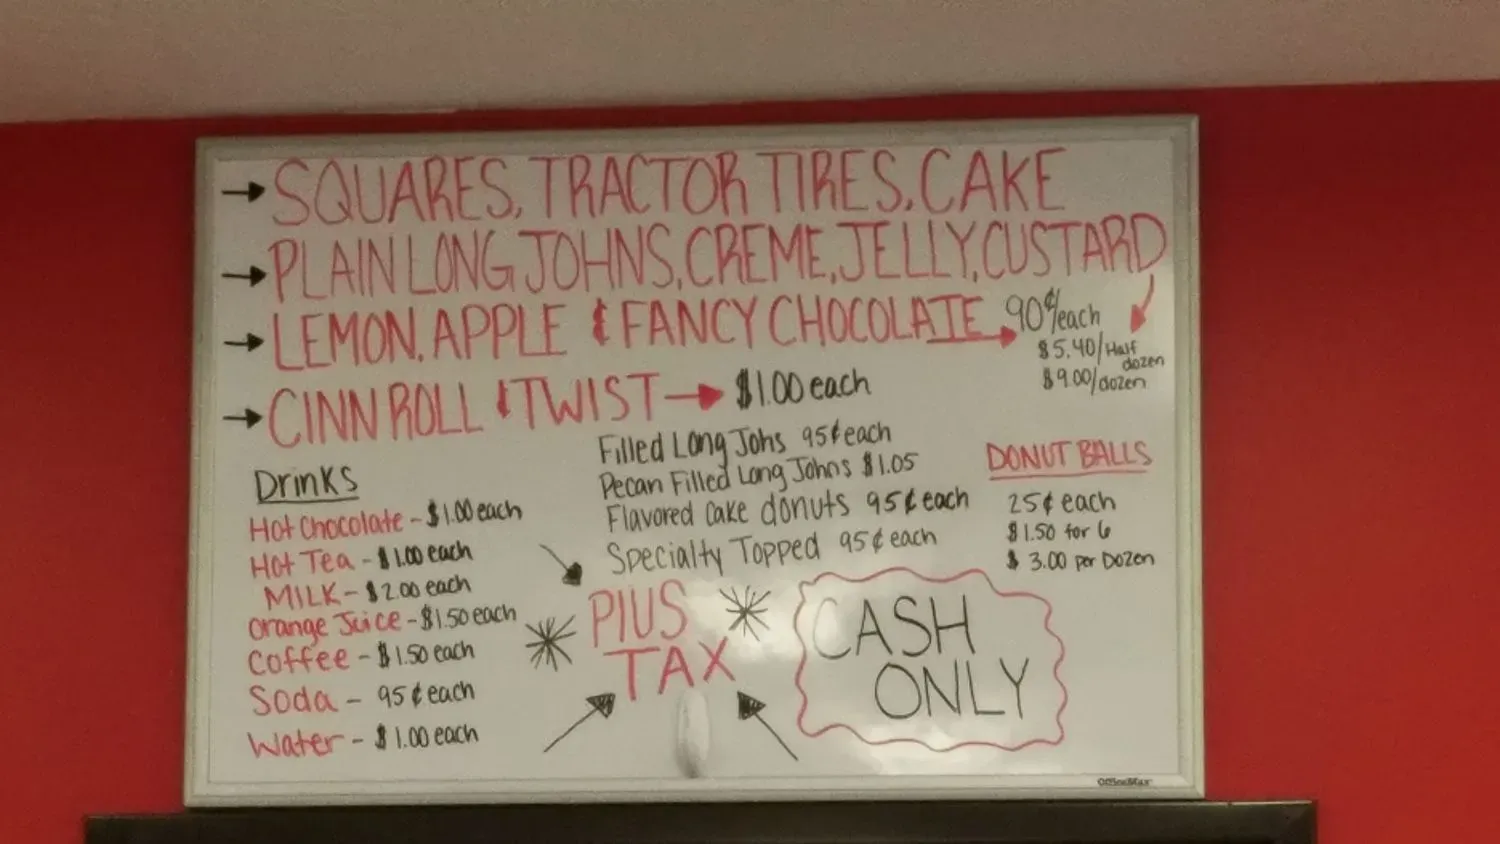 → SQUARES, TRACTOR TIRES, CAKE
→ PLAIN LONG JOHNS, CREME, JELLY, CUSTARD
→ LEMON, APPLE & FANCY CHOCOLATE → 90¢/each
$5.40/Half dozen
$9.00/dozen
→ CINN ROLL & TWIST → $1.00 each
Filled Long Johs 95¢ each
Pecan Filled Long Johns $1.05
Flavored Cake donuts 95¢ each
Specialty Topped 95¢ each
DONUT BALLS
25¢ each
$1.50 for 6
$ 3.00 per Dozen
Drinks
Hot Chocolate - $1.00 each
Hot Tea - $1.00 each
MILK - $2.00 each
Orange Juice - $1.50 each
Coffee - $1.50 each
Soda - 95¢ each
Water - $1.00 each
PlUS
TAX
CASH
ONLY
OfficeMax